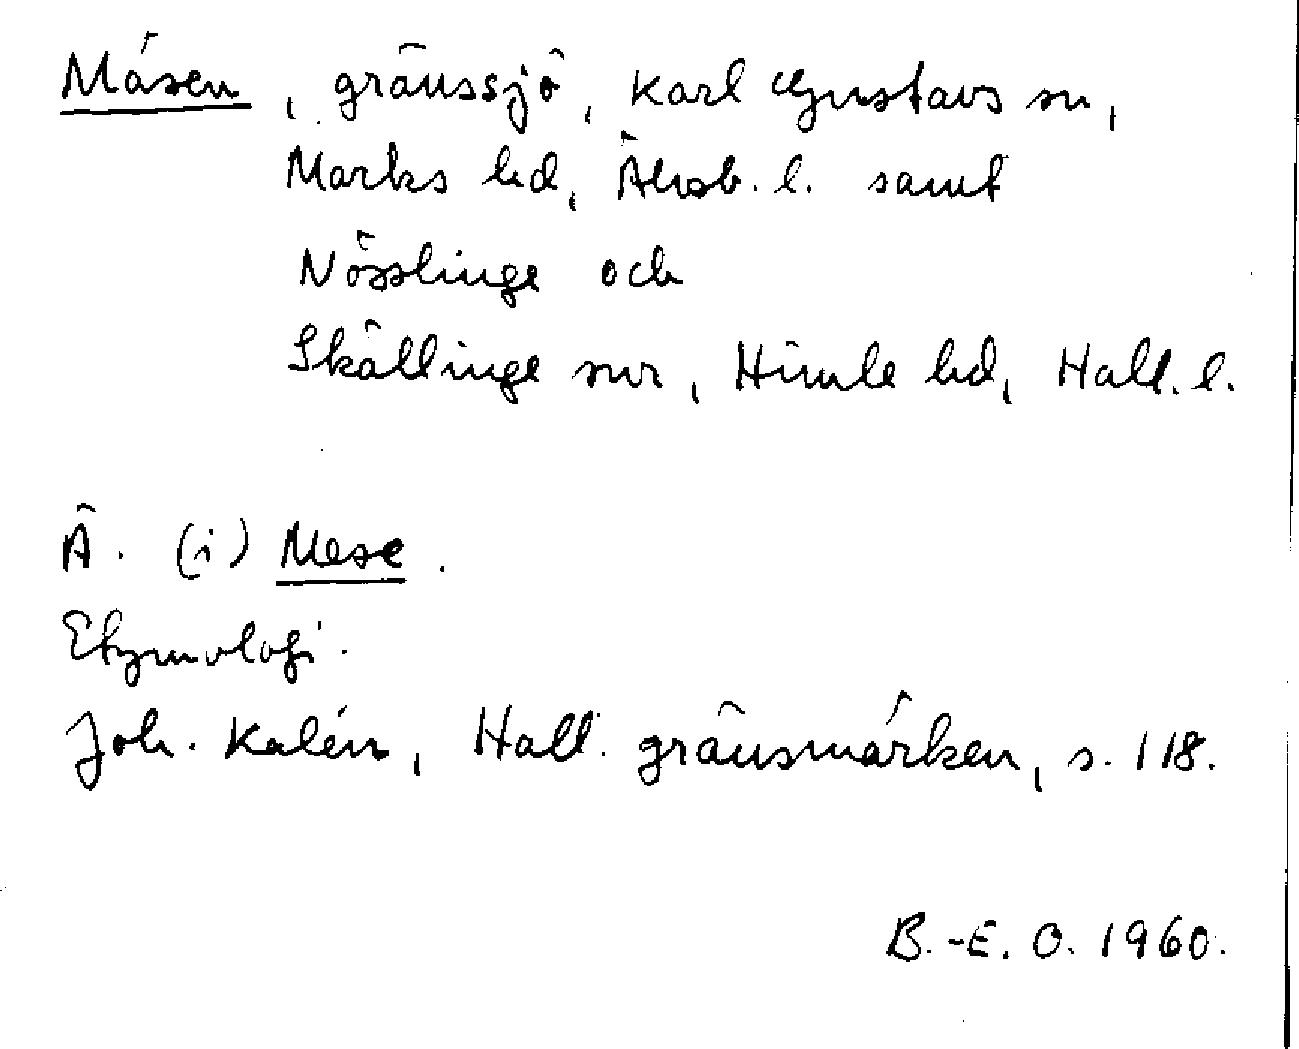 Mäsen, gränssjö, Karl Gustavs sn,
Marks hd, Älvsb. l. samt
Nösslinge och
Skällinge snr, Himle hd, Hall. l.
Ä. (i) Mese.
Etymologi.
Joh. Kalén, Hall. gränsmärken, s. 118.
B.-E. O. 1960.